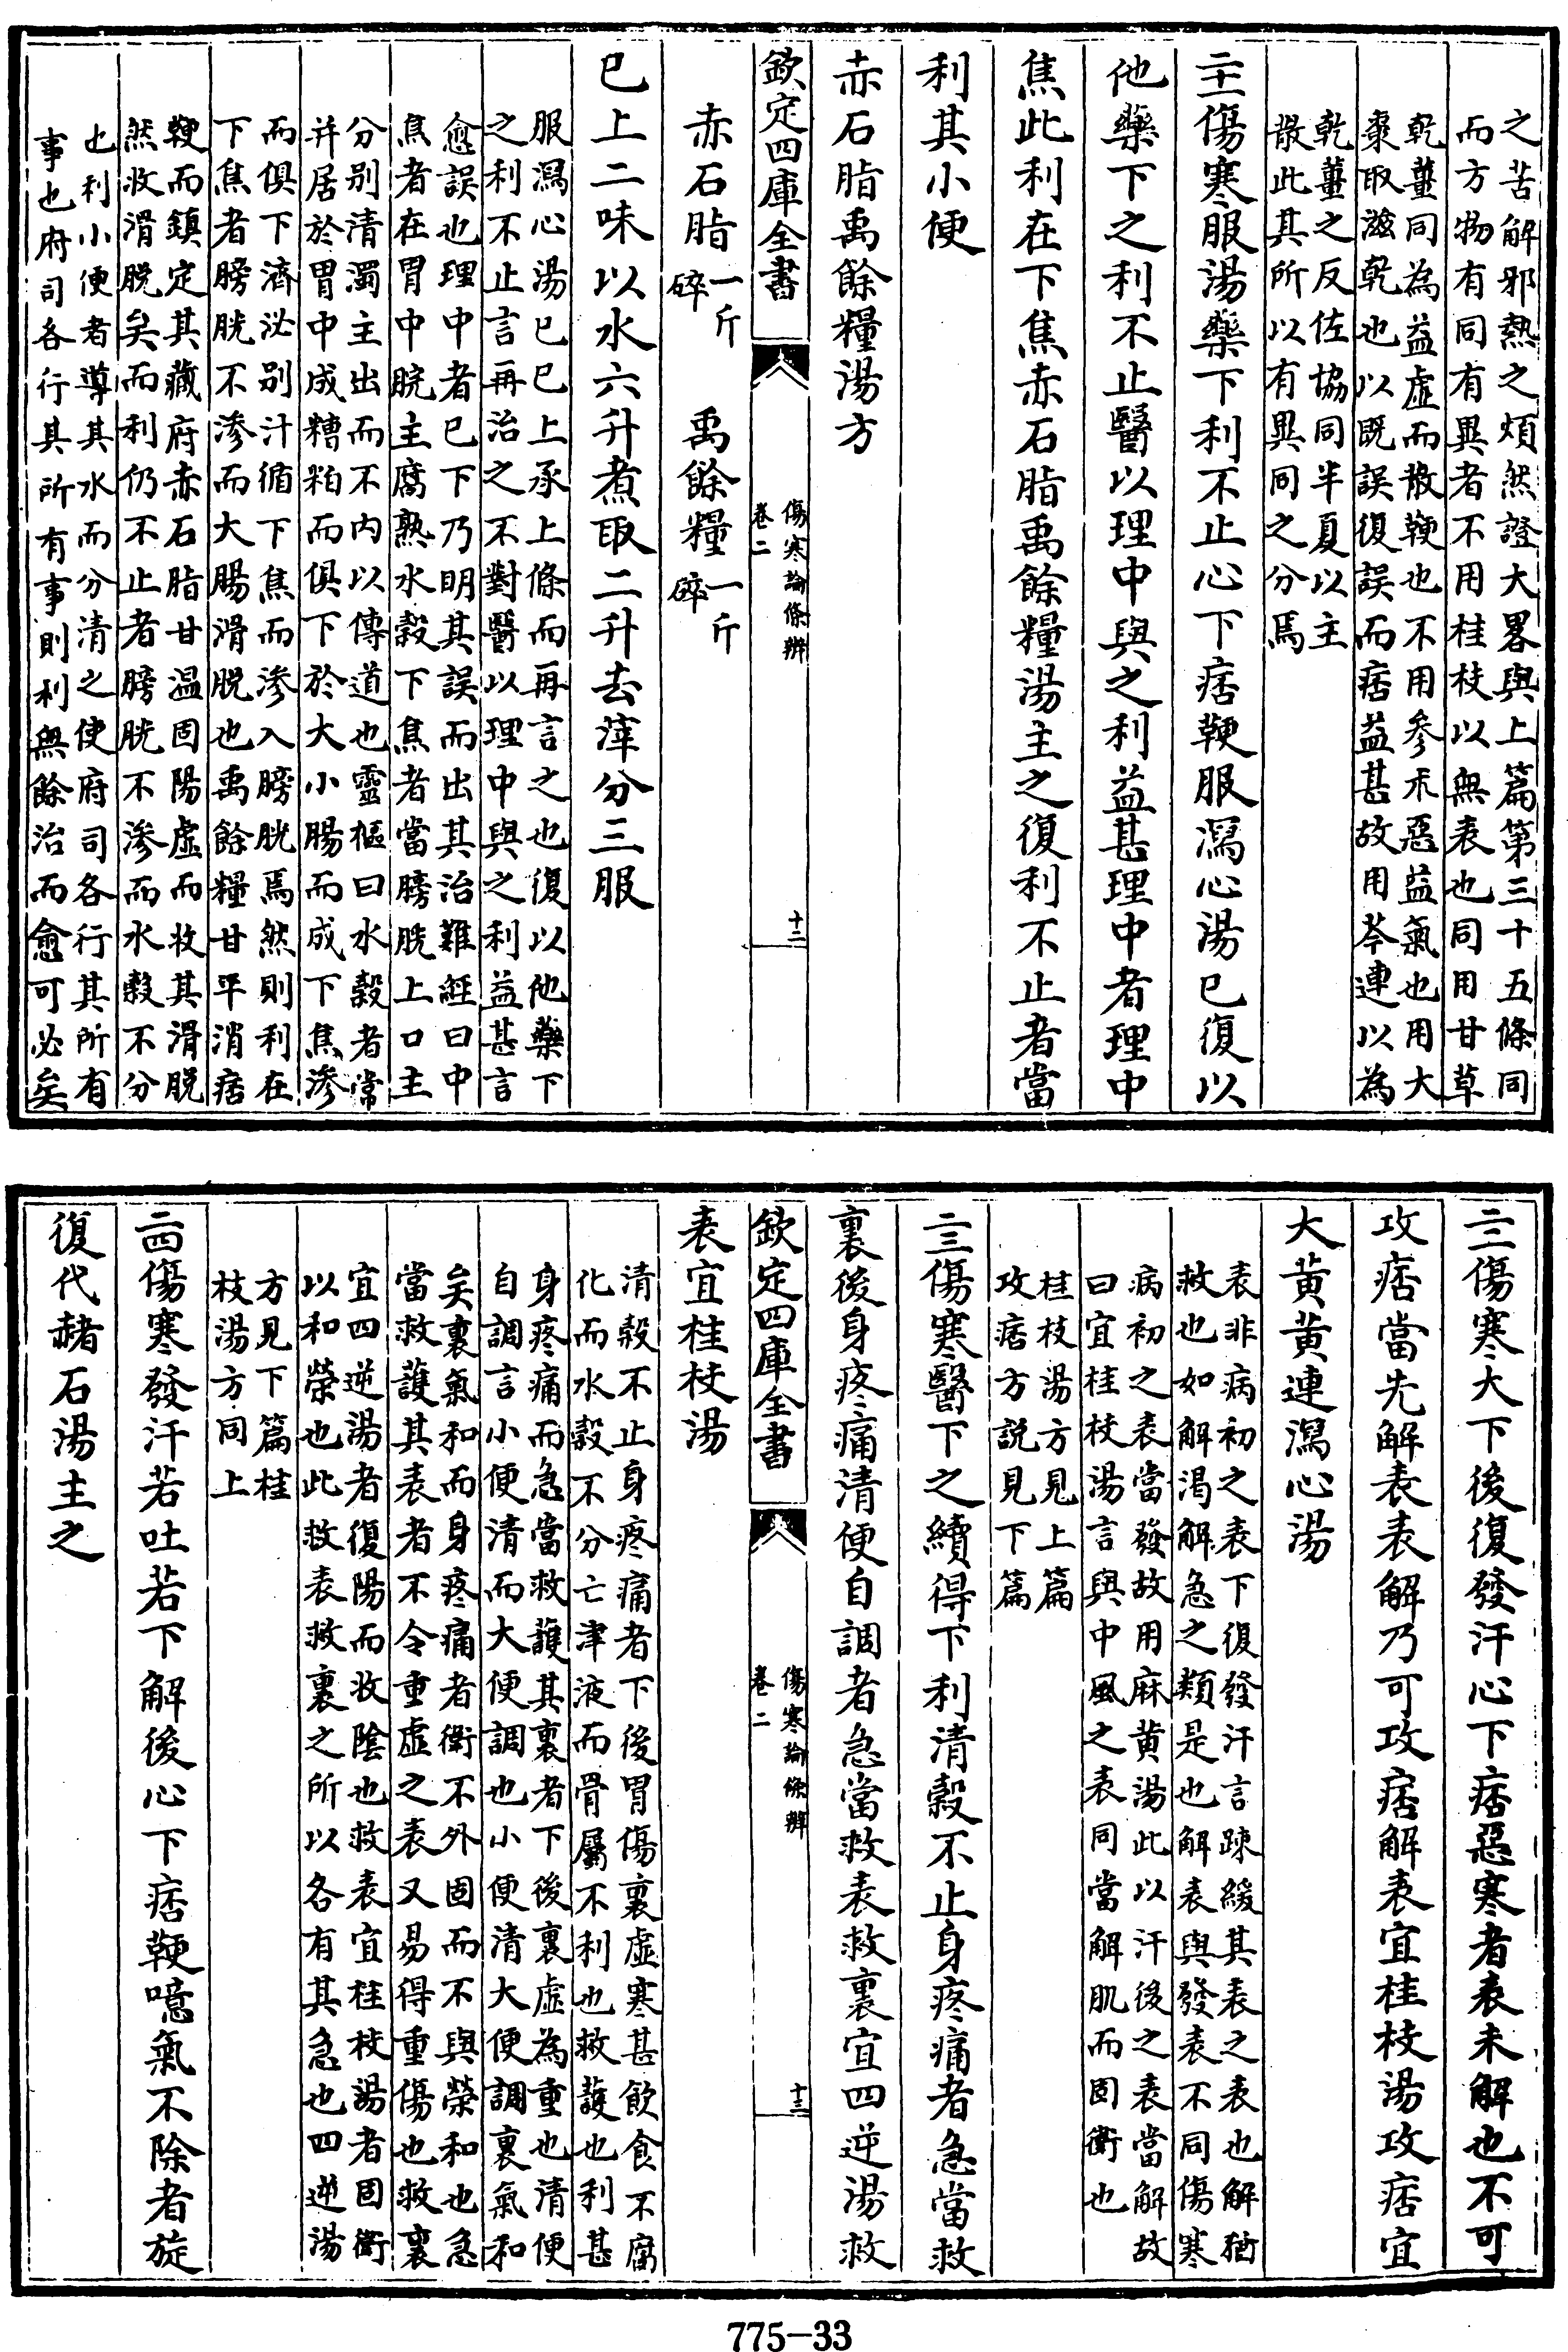 之苦解邪熱之煩然證大畧與上篇第三十五條同
而方物有同有異者不用桂枝以無表也同用甘草
乾薑同為益虛而散鞕也不用參朮惡益氣也用大
棗取滋乾也以既誤復誤而痞益甚故用芩連以為
乾薑之反佐協同半夏以主
散此其所以有異同之分焉
二十一傷寒服湯藥下利不止心下痞鞕服瀉心湯已復以
他藥下之利不止醫以理中與之利益甚理中者理中
焦此利在下焦赤石脂禹餘糧湯主之復利不止者當
利其小便
赤石脂禹餘糧湯方
欽定四庫全書
傷寒論條辨
卷二
十二
赤石脂一斤碎 禹餘糧一斤碎
已上二味以水六升煮取二升去滓分三服
服瀉心湯已已上承上條而再言之也復以他藥下
之利不止言再治之不對醫以理中與之利益甚言
愈誤也理中者已下乃明其誤而出其治難經曰中
焦者在胃中脘主腐熟水穀下焦者當膀胱上口主
分別清濁主出而不內以傳道也靈樞曰水穀者常
并居於胃中成糟粕而俱下於大小腸而成下焦滲
而俱下濟泌別汁循下焦而滲入膀胱焉然則利在
下焦者膀胱不滲而大腸滑脫也禹餘糧甘平消痞
鞕而鎮定其藏府赤石脂甘温固陽虛而收其滑脫
然收滑脫矣而利仍不止者膀胱不滲而水穀不分
也利小便者導其水而分清之使府司各行其所有
事也府司各行其所有事則利無餘治而愈可必矣
二十二傷寒大下後復發汗心下痞惡寒者表未解也不可
攻痞當先解表表解乃可攻痞解表宜桂枝湯攻痞宜
大黃黃連瀉心湯
表非病初之表下復發汗言疎緩其表之表也解猶
救也如解渴解急之類是也解表與發表不同傷寒
病初之表當發故用麻黃湯此以汗後之表當解故
曰宜桂枝湯言與中風之表同當解肌而固衛也
桂枝湯方見上篇
攻痞方説見下篇
二十三傷寒醫下之續得下利清穀不止身疼痛者急當救
裏後身疼痛清便自調者急當救表救裏宜四逆湯救
欽定四庫全書
傷寒論條辨
卷二
十三
表宜桂枝湯
清穀不止身疼痛者下後胃傷裏虛寒甚飲食不腐
化而水穀不分亡津液而骨屬不利也救護也利甚
身疼痛而急當救護其裏者下後裏虛為重也清便
自調言小便清而大便調也小便清大便調裏氣和
矣裏氣和而身疼痛者衛不外固而不與榮和也急
當救護其表者不令重虛之表又易得重傷也救裏
宜四逆湯者復陽而收陰也救表宜桂枝湯者固衛
以和榮也此救表救裏之所以各有其急也四逆湯
方見下篇桂
枝湯方同上
二十四傷寒發汗若吐若下解後心下痞鞕噫氣不除者旋
復代赭石湯主之
775-33